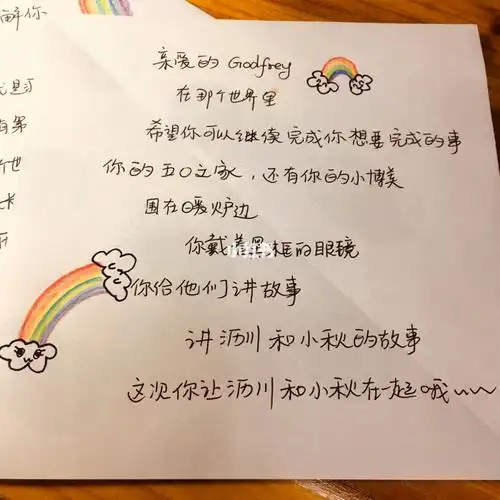 解你
亲爱的 Godfrey
在那个世界里
希望你可以继续完成你想要完成的事
你的五口之家，还有你的小博美
围在暖炉边
你戴着黑框的眼镜
你给他们讲故事
讲沥川和小秋的故事
这次你让沥川和小秋在一起哦~~